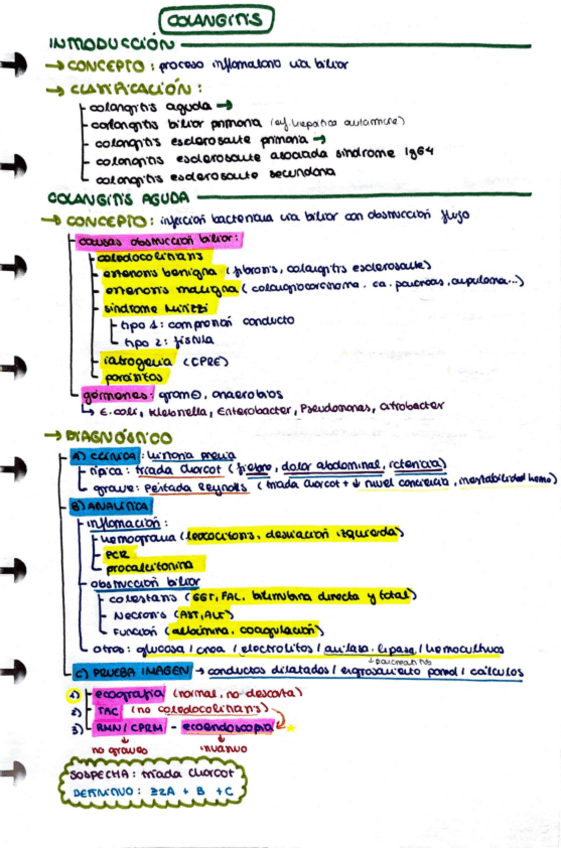 COLANGITIS
INTRODUCCIÓN
→ CONCEPTO: proceso inflamatorio vía biliar
→ CLASIFICACIÓN:
colangitis aguda →
colangitis biliar primaria (ej. hepatitis autoinmune)
colangitis esclerosante primaria →
colangitis esclerosante asociada síndrome IgG4
colangitis esclerosante secundaria
COLANGITIS AGUDA
→ CONCEPTO: infección bacteriana vía biliar con obstrucción flujo
causas obstrucción biliar:
coledocolitiasis
estenosis benigna (fibrosis, colangitis esclerosante)
estenosis maligna (colangiocarcinoma, ca. páncreas, ampuloma...)
síndrome Mirizzi
tipo 1: compresión conducto
tipo 2: fístula
iatrogenia (CPRE)
parásitos
gérmenes: gram ⊖, anaerobios
↳ E. coli, Klebsiella, Enterobacter, Pseudomonas, Citrobacter
→ DIAGNÓSTICO
A) CLÍNICA: historia previa
típica: triada Charcot (fiebre, dolor abdominal, ictericia)
grave: Pentada Reynolds (triada Charcot + ↓ nivel conciencia, inestabilidad hemo)
B) ANALÍTICA
inflamación:
hemograma (leucocitosis, desviación izquierda)
PCR
procalcitonina
obstrucción biliar
colestasis (GGT, FAL, bilirrubina directa y total)
Necrosis (AST, ALT)
Función (albúmina, coagulación)
otros: glucosa / crea / electrolitos / amilasa, lipasa / hemocultivos
↓ pancreatitis
C) PRUEBA IMAGEN → conductos dilatados / engrosamiento pared / cálculos
1) ecografía (normal, no descarta)
2) TAC (no coledocolitiasis)
3) RMN/CPRM - ecoendoscopia
↓ no graves ↓ invasivo
SOSPECHA: triada Charcot
DEFINITIVO: ≥2A + B + C